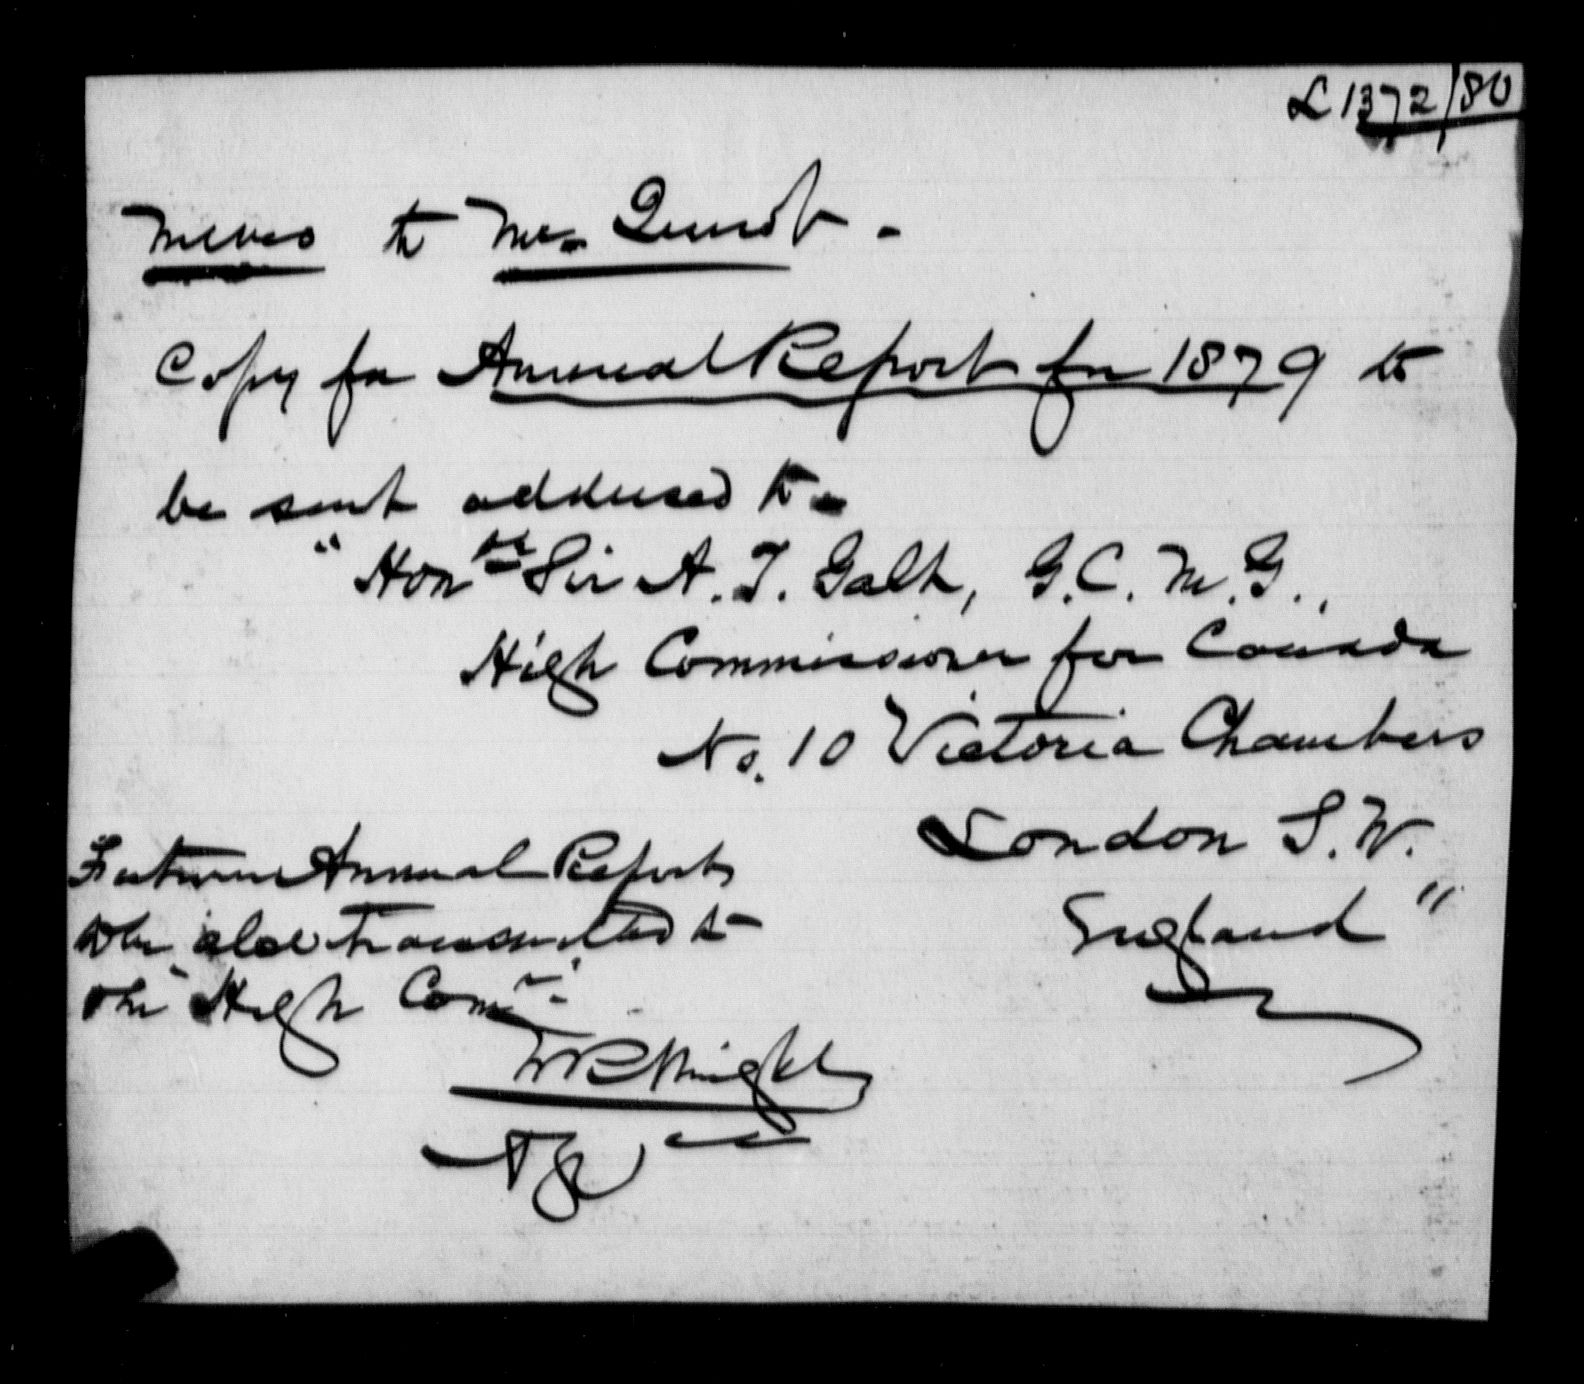 L 1372/80
Memo to Mr.
Copy for Annual Report for 1879 to
be sent addressed to -
"Honble Sir A. T. Galt, G.C.M.G.,
High Commissioner for Canada
No. 10 Victoria Chambers
London S.W.
England"
Future Annual Reports
to be also transmitted to
the High Comr.